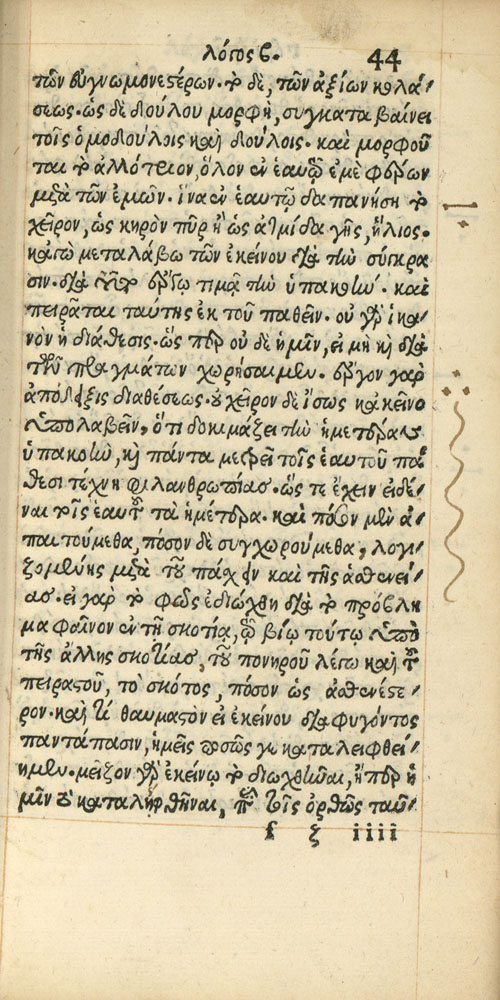 λόγος β. 44
τῶν εὐγνωμονεστέρων. τὸ δὲ, τῶν ἀξίων κολά/
σεως. ὡς δὲ δούλου μορφὴ, συγκαταβαίνει
τοῖς ὁμοδούλοις καὶ δούλοις. καὶ μορφοῦ
ται τὸ ἀλλότριον, ὅλον ἐν ἑαυτῷ ἐμὲ φέρων
μετὰ τῶν ἐμῶν. ἵνα ἐν ἑαυτῷ δαπανήσῃ τὸ
χεῖρον, ὡς κηρὸν πῦρ ἢ ὡς ἀτμίδα γῆς, ἥλιος.
κἀγὼ μεταλάβω τῶν ἐκείνου διὰ τὴν σύγκρα
σιν. διὰ τοῦτο ἔργῳ τιμᾷ τὴν ὑπακοήν. καὶ
πειρᾶται ταύτης ἐκ τοῦ παθεῖν. οὐ γὰρ ἱκα/
νὸν ἡ διάθεσις. ὥσπερ οὐδὲ ἡμῖν, εἰ μὴ καὶ διὰ
τῶν πραγμάτων χωρήσαιμεν. ἔργον γὰρ
ἀπόδειξις διαθέσεως. οὐ χεῖρον δὲ ἴσως κἀκεῖνο
ὑπολαβεῖν, ὅτι δοκιμάζει τὴν ἡμετέραν
ὑπακοὴν, καὶ πάντα μετρεῖ τοῖς ἑαυτοῦ πά/
θεσι τέχνῃ φιλανθρωπίας. ὥστε ἔχειν εἰδέ/
ναι τοῖς ἑαυτοῦ τὰ ἡμέτερα. καὶ πόσον μὲν ἀ/
παιτούμεθα, πόσον δὲ συγχωρούμεθα, λογι/
ζομένης μετὰ τοῦ πάσχειν καὶ τῆς ἀσθενεί/
ας. εἰ γὰρ τὸ φῶς ἐδιώχθη διὰ τὸ πρόβλη
μα φαῖνον ἐν τῇ σκοτίᾳ, τῷ βίῳ τούτῳ ὑπὸ
τῆς ἄλλης σκοτίας, τοῦ πονηροῦ λέγω καὶ τοῦ
πειραστοῦ, τὸ σκότος, πόσον ὡς ἀσθενέστε/
ρον. καὶ τί θαυμαστὸν εἰ ἐκείνου διαφυγόντος
παντάπασιν, ἡμεῖς ποσῶς γε καταλειφθεί/
ημεν. μεῖζον γὰρ ἐκείνῳ τὸ διωχθῆναι, ἤπερ ἡ
μῖν τὸ καταληφθῆναι, παρὰ τοῖς ὀρθῶς ταῦ/
f ξ iiii